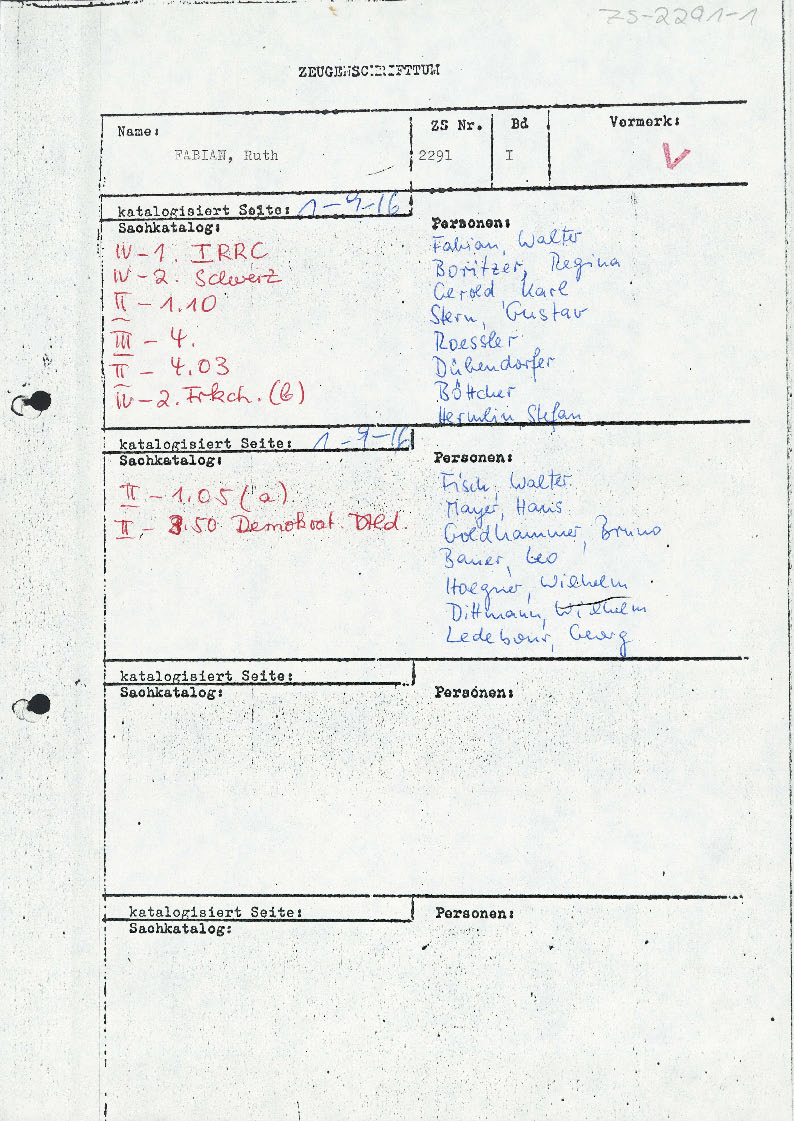 ZS-2291-1
ZEUGENSCHRIFTTUM
Name: ZS Nr. Bd Vermerk:
FABIAN, Ruth 2291 I V
katalogisiert Seite: 1-9-16
Sachkatalog: Personen:
IV-1. IRRC Fabian, Walter
IV-2. Schweiz Boritzer, Regina
II - 1.10 Gerold Karl
III - 4. Stern, Gustav
II - 4.03 Roessler
IV-2. Frkch. (b) Dübendorfer
Böttcher
Hermlin Stefan
katalogisiert Seite: 1-9-16
Sachkatalog: Personen:
II - 1.05 (a) Fisch, Walter
II - 3.50 Demokrat. Dtld. Mayer, Hans
Goldhammer, Bruno
Bauer, Leo
Hoegner, Wilhelm
Dittmann, Wilhelm
Ledebour, Georg
katalogisiert Seite:
Sachkatalog: Personen:
katalogisiert Seite: Personen:
Sachkatalog: